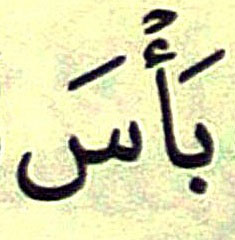 بَأْسَ